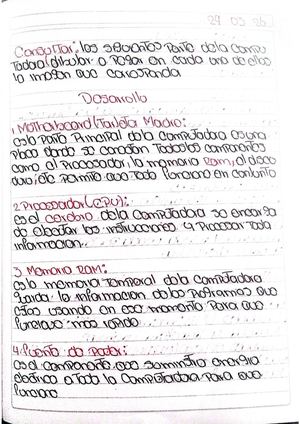 29 03 26
Consultar: las siguientes Parte dela Compu
tadora (dibular o Pegar en cada una de ellas
la imagen que corresponda
Desarrollo
1 Motherboard (tarjeta Madre):
esla Parte Principal dela computadora es una
Placa donde se conectan Todos los componentes
como el Procesador, la memoria Ram, el disco
duro, etc Permite que Todo funcione en conjunto
2. Procesador (CPU):
es el cerebro dela Computadora se encarga
de ejecutar las instrucciones y Procesar Toda
informacion.
3. Memoria RAM:
esla memoria Temporal dela Computadora
Guarda la informacion delos Programas que
estas usando en ese momento Para que
funcione mas rapido
4. fuente de Poder:
es el componente que suministra energia
electrica a Toda la Computadora Para que
funcione